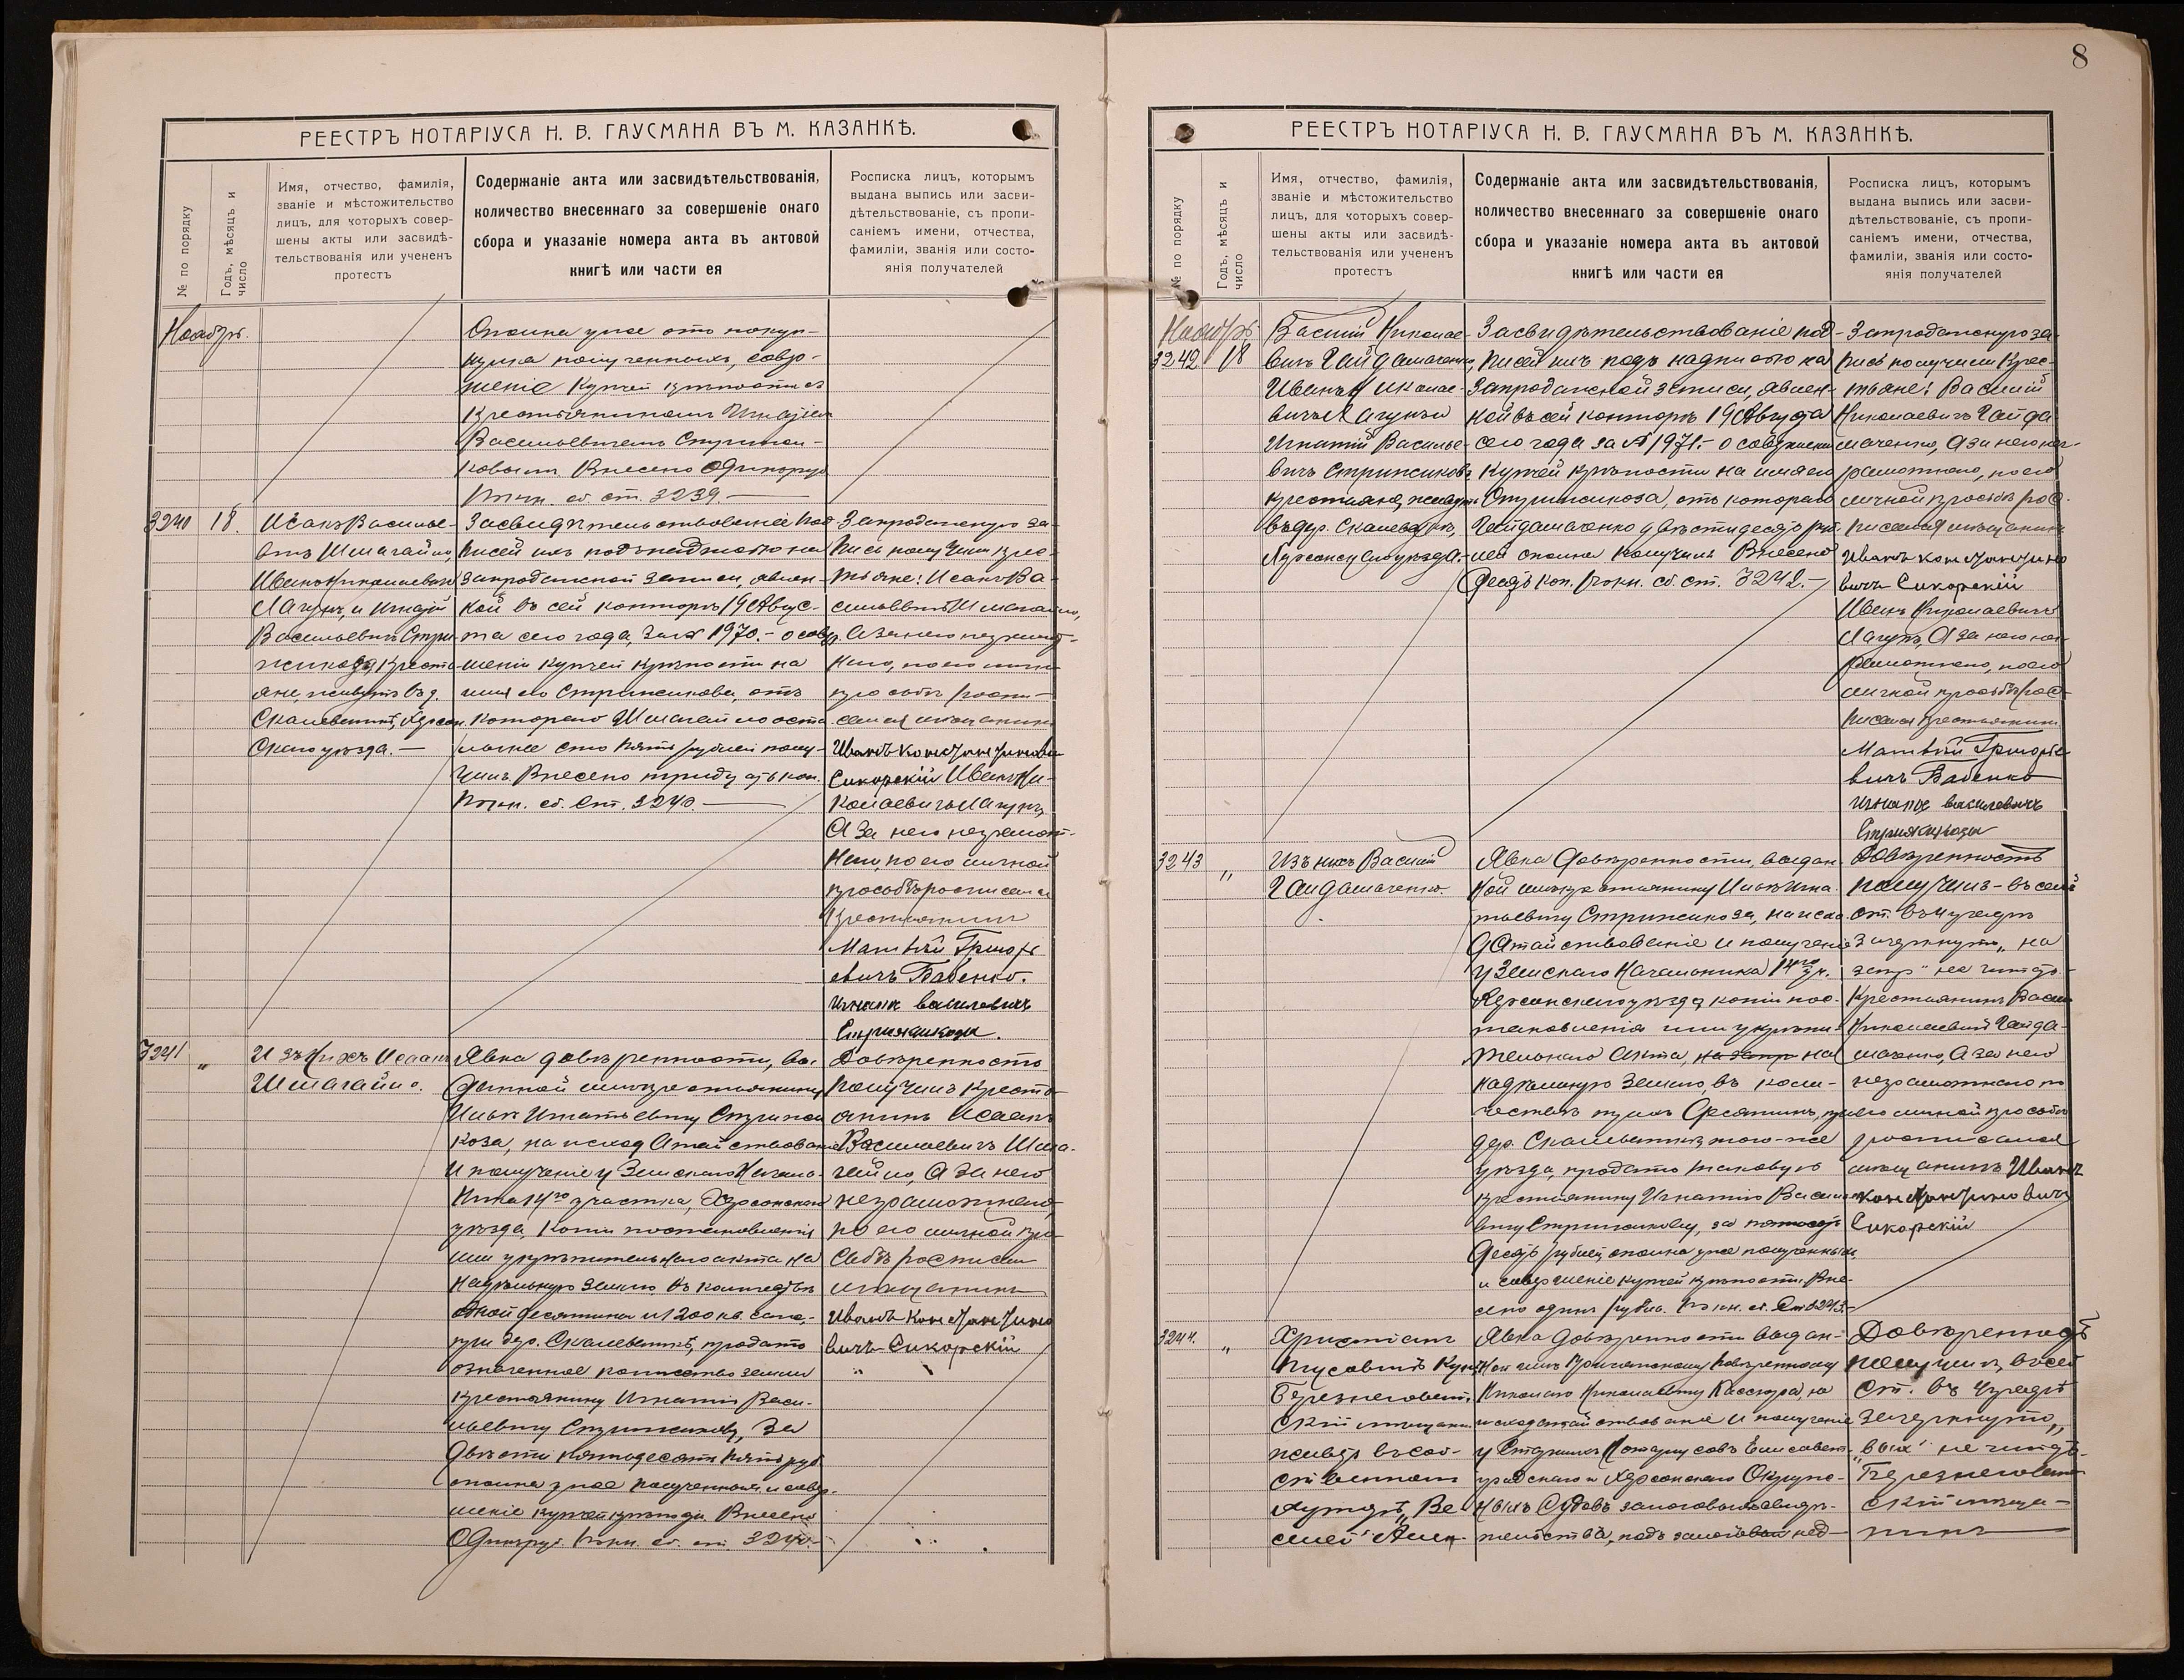 РЕЕСТРЪ НОТАРІУСА Н. В. ГАУСМАНА ВЪ М. КАЗАНКѢ.
№ по порядку
Годъ, мѣсяцъ и
число
Имя, отчество, фамилія,
званіе и мѣстожительство
лицъ, для которыхъ совер-
шены акты или засвидѣ-
тельствованія или учененъ
протестъ
Содержаніе акта или засвидѣтельствованія,
количество внесеннаго за совершеніе онаго
сбора и указаніе номера акта въ актовой
книгѣ или части ея
Росписка лицъ, которымъ
выдана выпись или засви-
дѣтельствованіе, съ пропи-
саніемъ имени, отчества,
фамиліи, званія или состо-
янія получателей
Ноябрь.
Сполна уже отъ покуп-
щика полученныхъ, совер-
шеніе купчей крѣпости съ
крестьяниномъ Игнатіем
Васильевичемъ Стрижа-
Внесено Одинъ руб
ст. 3239 —
3240 18.
Исакъ Василье-
вичъ Шмагайло,
Иванъ Николаевичъ
Лагунъ, и Игнатій
Васильевичъ Стри-
жикоза, кресть-
яне, живутъ въ д.
Скалеваткѣ, Херсон
скаго уѣзда. —
Засвидѣтельствованіе под
писей ихъ подъ надписью на
запродажной записи, явлен-
ной въ сей конторѣ 19 Авгус-
та сего года, за № 1970. - о совер
шеніи купчей крѣпости на
имя его Стрижикова, отъ
котораго Шмагайло оста
льные сто пять рублей полу-
чилъ. Внесено тридцать коп.
ст. 3240. —
Запродажную за-
пись получили крес-
тьяне: Исакъ Ва-
сильевичъ Шмагайло,
А за него неграмот-
наго, по его личн
просьбѣ роспи-
сался мѣщанинъ
Иванъ Константинови
Сикорскій Иванъ Ни-
колаевичъ Лагунъ,
А за него неграмот-
наго, по его личной
просьбѣ росписался
крестьянинъ
Матвѣй Григорь
евичъ Бабенко.
Василевичъ
3241 „
Изъ нихъ Исаакъ
Шмагайло.
Явка довѣренности, вы-
данной имъ крестьянину
Ильѣ Игнатьевичу Стрижи
коза, на исходатайствован
и полученіе у Земскаго Началь-
ника 14го участка, Херсонскаго
уѣзда, копіи постановленія
или укрѣпительнаго акта на
надѣльную землю въ количествѣ
одной десятины и 1200 кв. саж.,
при дер. Скалеваткѣ, продать
означенное количество земли
крестьянину Игнатію Васи-
льевичу Стрижикову, за
двѣсти пятьдесятъ пять руб
сполна уже полученныхъ и совер-
шеніе купчей крѣпости. Внесено
Одинъ руб. ст. 3240.
Довѣренность
получилъ кресть-
янинъ Исаакъ
Васильевичъ Шма-
гайло, А за него
неграмотнаго,
по его личной про
сьбѣ росписал
мѣщанинъ
Иванъ Константино
вичъ Сикорскій
8
РЕЕСТРЪ НОТАРІУСА Н. В. ГАУСМАНА ВЪ М. КАЗАНКѢ.
№ по порядку
Годъ, мѣсяцъ и
число
Имя, отчество, фамилія,
званіе и мѣстожительство
лицъ, для которыхъ совер-
шены акты или засвидѣ-
тельствованія или учененъ
протестъ
Содержаніе акта или засвидѣтельствованія,
количество внесеннаго за совершеніе онаго
сбора и указаніе номера акта въ актовой
книгѣ или части ея
Росписка лицъ, которымъ
выдана выпись или засви-
дѣтельствованіе, съ пропи-
саніемъ имени, отчества,
фамиліи, званія или состо-
янія получателей
Ноябрь
3242 18
Василій Николае-
вичъ Гайдамаченко,
Иванъ Николае-
вичъ Лагунъ и
Игнатій Василье-
вичъ Стрижиковъ
крестьяне, живутъ
въ дер. Скалеваткѣ,
Херсонскаго уѣзда.
Засвидѣтельствованіе под-
писей ихъ подъ надписью на
Запродажной записи, явлен-
ной въ сей конторѣ 19 Августа
сего года за № 1971. - о совершеніи
купчей крѣпости на имя его
Стрижикоза, отъ котораго
Гайдамаченко двѣсти десять руб.
сполна получилъ Внесено
десять коп. ст. 3242. —
Запродажную за-
пись получили крес-
тьяне: Василій
Николаевичъ Гайда
маченко, А за него не-
грамотнаго, по его
личной просьбѣ рос-
писался мѣщанинъ
Иванъ Константино
вичъ Сикорскій
Иванъ Николаевичъ
Лагунъ, А за него не-
грамотнаго, по его
личной просьбѣ рос-
писался крестьянинъ
Матвѣй Григорье
вичъ Бабенко
Василевичъ
3243 „
Изъ нихъ Василій
Гайдамаченко.
Явка довѣренности, выдан-
ной имъ крестьянину Ильѣ Игна-
тьевичу Стрижикоза, на исхо-
датайствованіе и полученіе
у Земскаго Начальника 14го уч.
Херсонскаго уѣзда, копіи пос-
тановленія или укрѣпи-
тельнаго Акта, на
надѣльную землю, въ коли-
чествѣ десятинъ, при
дер. Скалеваткѣ, того-же
уѣзда, продать таковую
крестьянину Игнатію Василь
вичу Стрижикову, за
десять рублей, сполна уже полученныхъ,
и совершеніе купчей крѣпости. Вне-
сено одинъ рубль. ст. 3243.
Довѣренность
получилъ - въ сей
ст. въ 4 граф
зачеркнуто „на
запр" не чит
Крестьянинъ Васил
Николаевичъ Гайда-
маченко, А за него
неграмотнаго по
его личной просьбѣ
росписался
мѣщанинъ Иванъ
Константиновичъ
Сикорскій
3244. „
Христіанъ
Березнеговат-
скій мѣщани
живетъ въ соб-
ственномъ
хуторѣ, „Ве
селей"
Явка довѣренности выдан-
ной имъ повѣренному
Николаю Николаевичу на
исходатайствованіе и полученіе
у Старшихъ Нотаріусовъ Елисавет-
градскаго и Херсонскаго Окруж-
ныхъ Судовъ залоговыхъ свидѣ-
тельства, подъ залогъ нед-
Довѣренность
получилъ, въ сей
ст. въ 4 графѣ
зачеркнуто „
выя" не чит
Березнеговат
скій мѣща-
нинъ